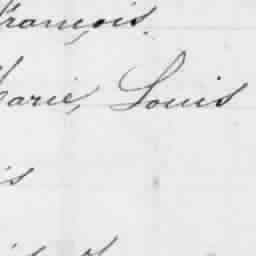 François.
Marie, Louis
is